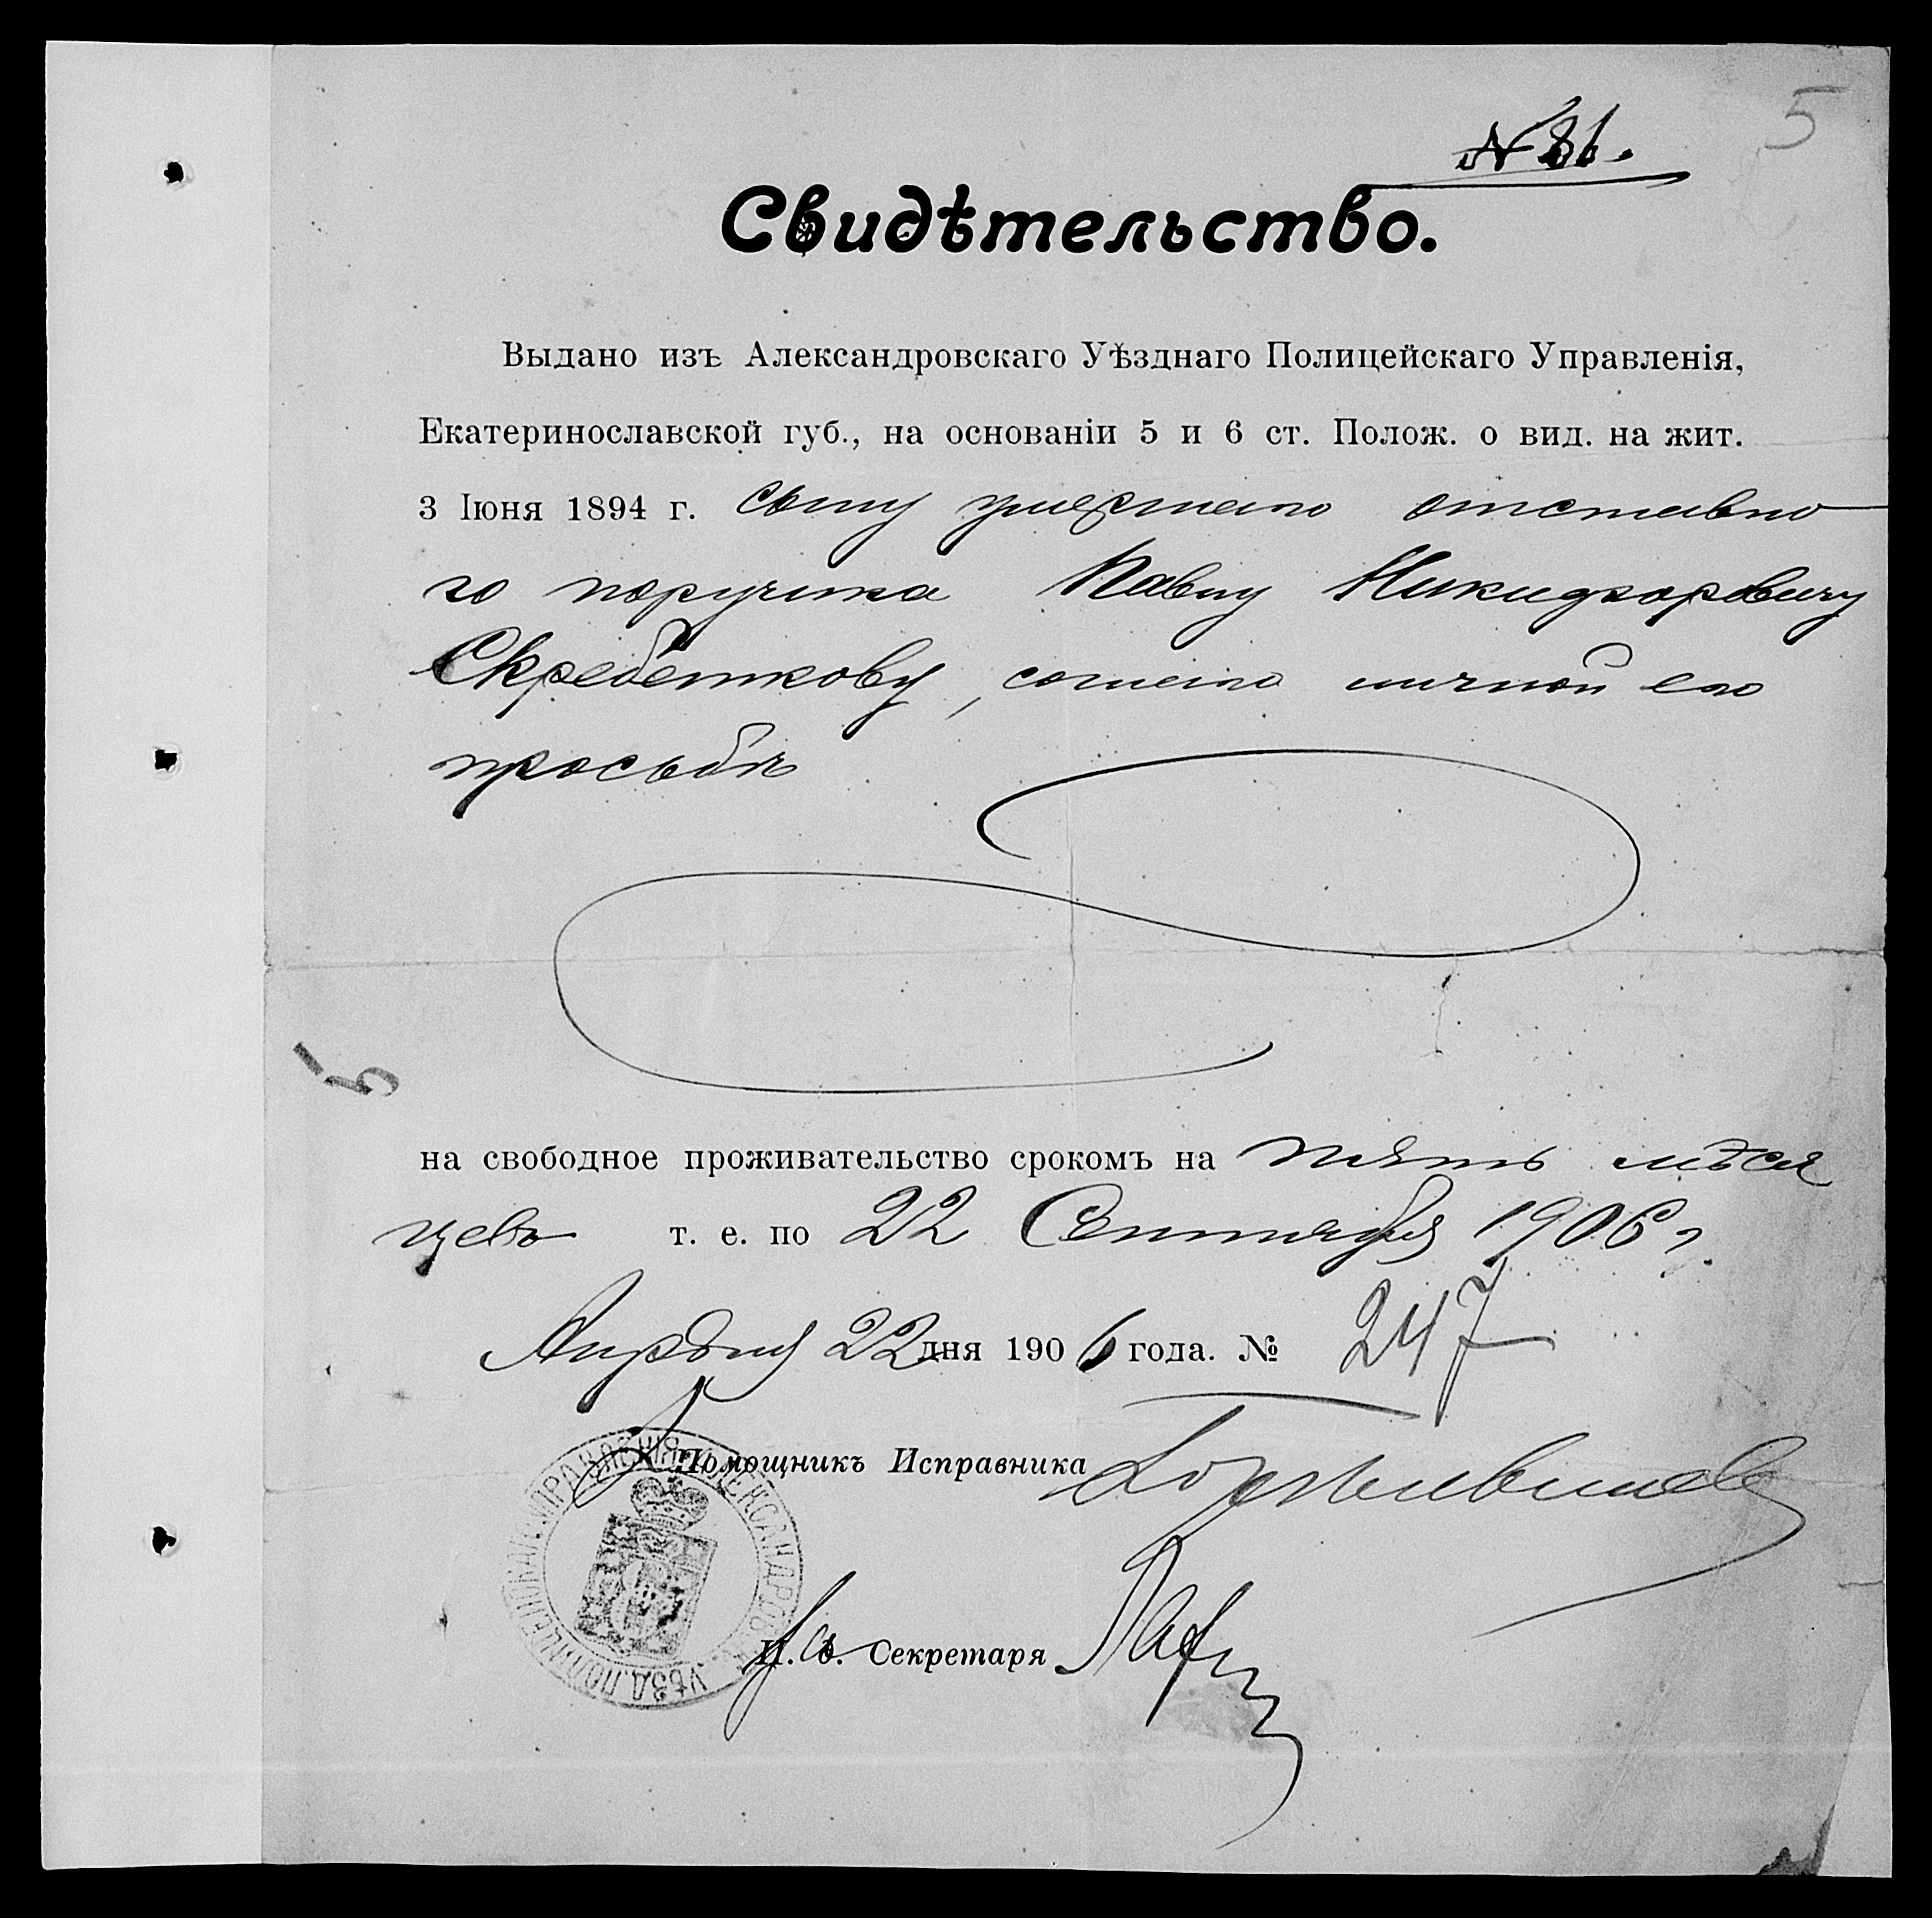 5
№ 81.
Свидѣтельство.
Выдано изъ Александровскаго Уѣзднаго Полицейскаго Управленія,
Екатеринославской губ., на основаніи 5 и 6 ст. Полож. о вид. на жит.
3 Іюня 1894 г. сыну умершаго отставно
го поручика Павлу Никифоровичу
Скребеткову, согласно личной его
просьбѣ
на свободное проживательство срокомъ на пять мѣся
цевъ т. е. по 22 Сентября 1906 г.
Апрѣля 22 дня 1906 года. № 247
Помощникъ Исправника
И. д. Секретаря